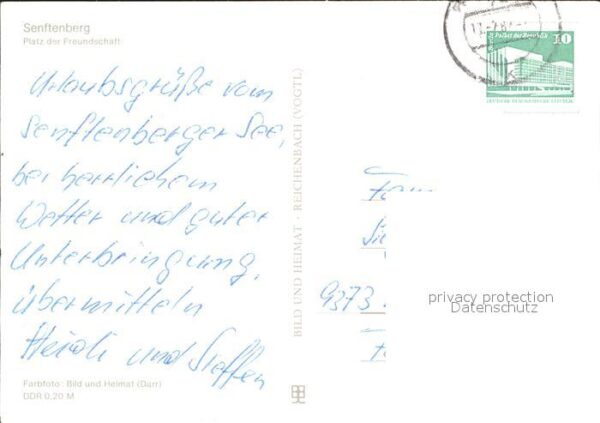 Senftenberg
Platz der Freundschaft
Urlaubsgrüße vom
Senftenberger See,
bei herrlichem
Wetter und guter
Unterbringung,
übermitteln
Heidi und Steffen
Farbfoto: Bild und Heimat (Darr)
DDR 0,20 M
BILD UND HEIMAT · REICHENBACH (VOGTL)
Palast der Republik
10
DEUTSCHE DEMOKRATISCHE REPUBLIK
Fam
9373
privacy protection
Datenschutz